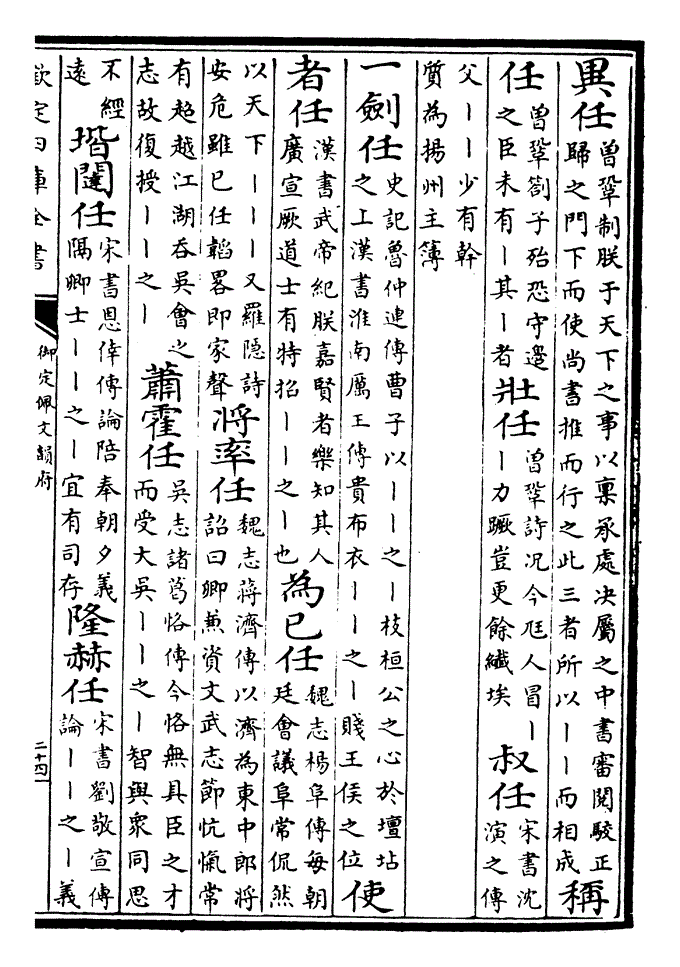 異任曾鞏制朕于天下之事以稟承處决屬之中書審閱駮正歸之門下而使尚書推而行之此三者所以｜｜而相成稱
任曾鞏劄子殆恐守邊之臣未有｜其｜者壯任曾鞏詩况今尫人冒｜｜力蹶豈更餘纖埃叔任宋書沈演之傳
父｜｜少有幹質為揚州主簿
一劍任史記魯仲連傳曹子以｜｜之｜枝桓公之心於壇坫之上漢書淮南厲王傳貴布衣｜｜之｜賤王侯之位使
者任漢書武帝紀朕嘉賢者樂知其人廣宣厥道士有特招｜｜之｜也為已任魏志楊阜傳每朝廷會議阜常侃然
以天下｜｜｜又羅隱詩安危雖已任韜畧即家聲將率任魏志蔣濟傳以濟為東中郎將詔曰卿兼資文武志節忼愾常
有超越江湖吞吳會之志故復授｜｜之｜蕭霍任吳志諸葛恪傳今恪無具臣之才而受大吳｜｜之｜智與衆同思
不經遠堦闥任宋書恩倖傳論陪奉朝夕義隔卿士｜｜之｜宜有司存隆赫任宋書劉敬宣傳論｜｜之｜義
欽定四庫全書
御定佩文韻府
二十四